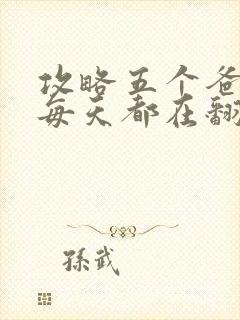 攻略五个爸
每天都在翻
孫武